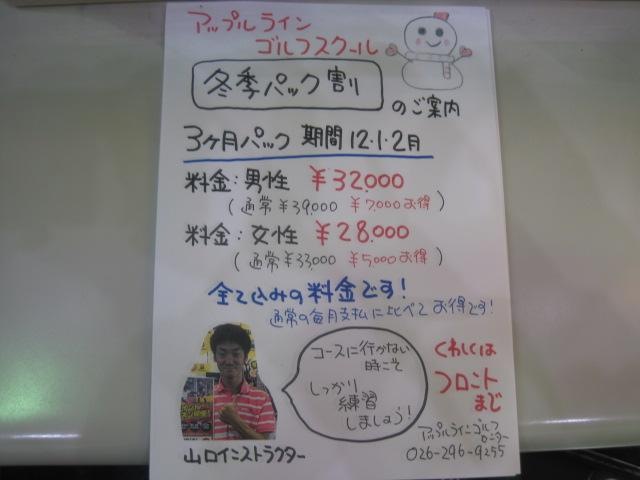 アップルライン
ゴルフスクール
冬季パック割
のご案内
3ヶ月パック 期間12・1・2月
料金:男性 ¥32,000
(通常¥39,000 ¥7,000お得)
料金:女性 ¥28,000
(通常¥33,000 ¥5,000お得)
全て込みの料金です!
通常の毎月支払に比べてお得です!
コースに行かない
時こそ
しっかり
練習
しましょう!
くわしくは
フロント
まで
山口インストラクター
アップルラインゴルフ
センター
026-296-9255